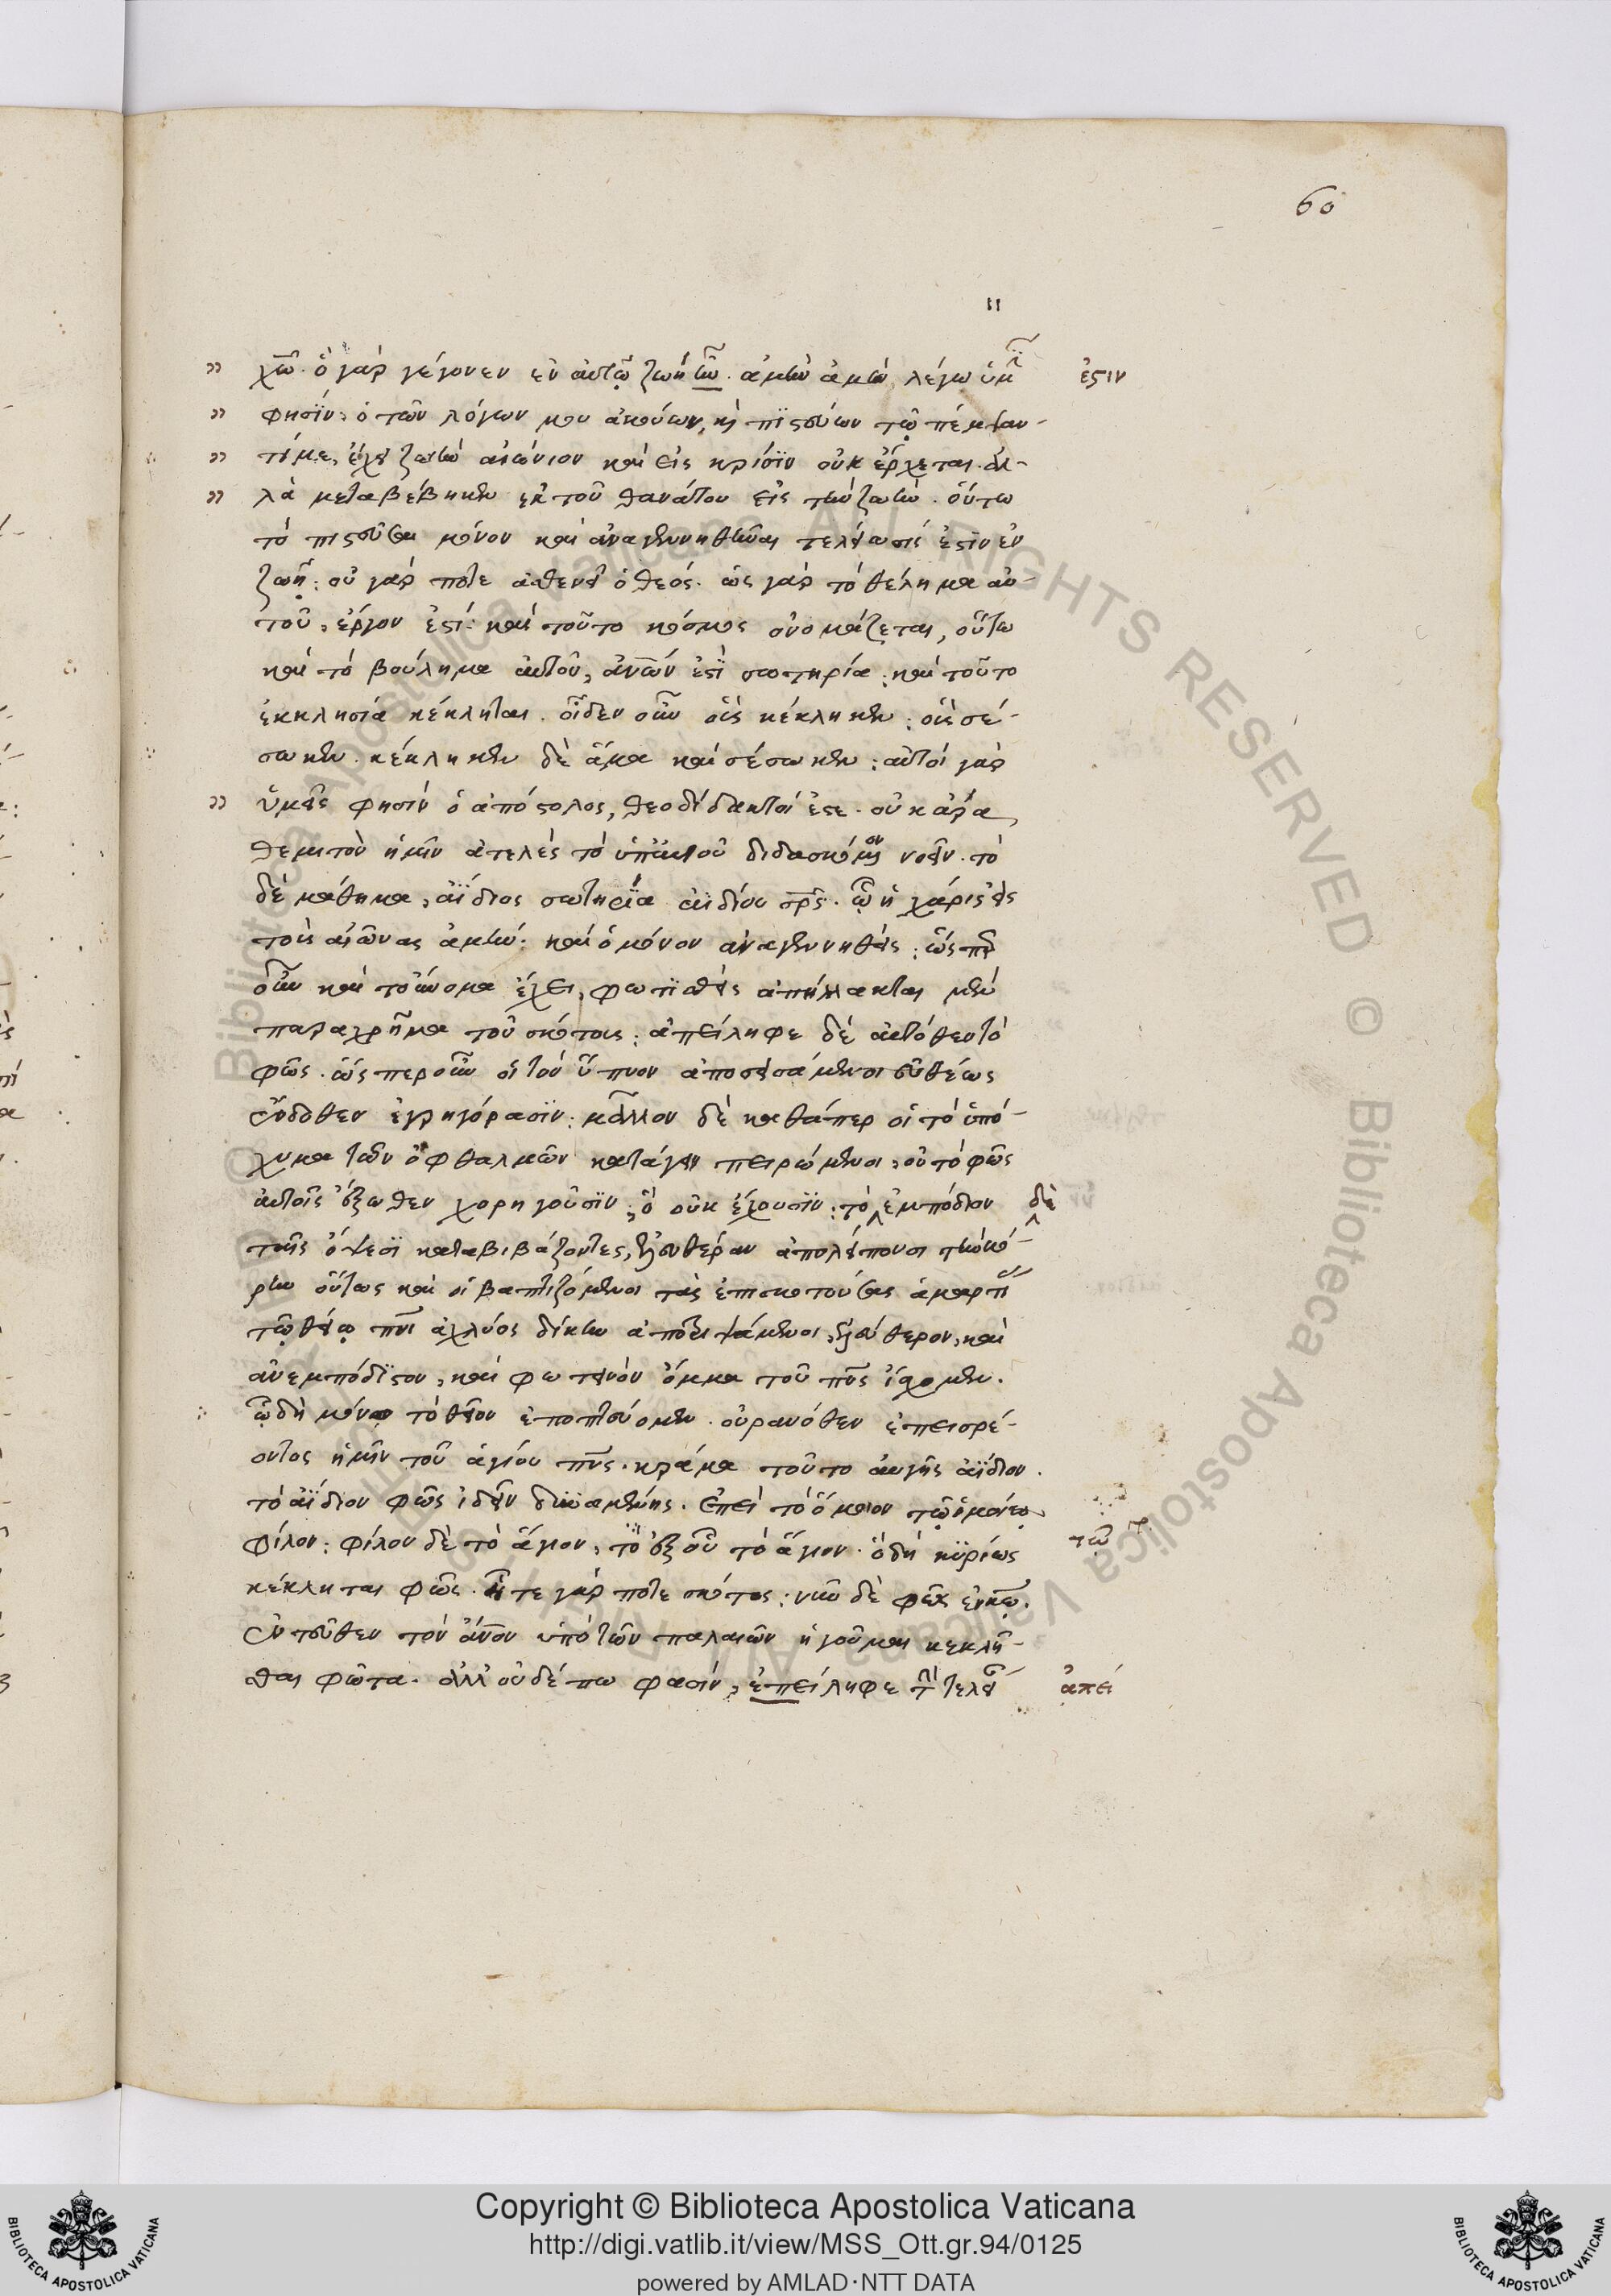 60
11
χω̅. ὃ γὰρ γέγονεν ἐν αὐτῷ ζωὴ ἦν. ἀμὴν ἀμὴν λέγω ὑμῖν ἐστιν
φησὶν, ὁ τῶν λόγων μου ἀκούων, καὶ πιστεύων τῷ πέμψαν-
τί με, ἔχει ζωὴν αἰώνιον καὶ εἰς κρίσιν οὐκ ἔρχεται. ἀλ-
λὰ μεταβέβηκεν ἐκ τοῦ θανάτου εἰς τὴν ζωήν. οὕτω
τὸ πιστεῦσαι μόνον καὶ ἀναγεννηθῆναι τελείωσίς ἐστιν ἐν
ζωῇ: οὐ γάρ ποτε ἀσθενεῖ ὁ θεός. ὡς γὰρ τὸ θέλημα αὐ-
τοῦ, ἔργον ἐστί: καὶ τοῦτο κόσμος ὀνομάζεται, οὕτω
καὶ τὸ βούλημα αὐτοῦ, ἀν̅ων ἐστὶ σωτηρία: καὶ τοῦτο
ἐκκλησία κέκληται. οἶδεν οὖν οὓς κέκληκεν: οὓς σέ-
σωκεν. κέκληκεν δὲ ἅμα καὶ σέσωκεν: αὐτοὶ γὰρ
ὑμεῖς φησὶν ὁ ἀπόστολος, θεοδίδακτοί ἐστε. οὐκ ἄρα
θεμιτὸν ἡμῖν ἀτελὲς τὸ ὑπ' αὐτοῦ διδασκόμενον νοεῖν. τὸ
δὲ μάθημα, ἀΐδιος σωτηρία ἀϊδίου σρ̅ς. ᾧ ἡ χάρις εἰς
τοὺς αἰῶνας ἀμήν: καὶ ὁ μόνον ἀναγεννηθείς: ὥσπερ
οὖν καὶ τοὔνομα ἔχει, φωτισθεὶς ἀπήλλακται μὲν
παραχρῆμα τοῦ σκότους: ἀπείληφε δὲ αὐτόθεν τὸ
φῶς. ὥσπερ οὖν οἱ τὸν ὕπνον ἀποσεισάμενοι εὐθέως
ἔνδοθεν ἐγρηγόρασιν: μᾶλλον δὲ καθάπερ οἱ τὸ ὑπό-
χυμα τῶν ὀφθαλμῶν κατάγειν πειρώμενοι, οὐ τὸ φῶς
αὐτοῖς ἔξωθεν χορηγοῦσιν, ὃ οὐκ ἔχουσιν: τὸ ἐμπόδιον δὲ
ταῖς ὄψεσι καταβιβάζοντες, ἐλευθέραν ἀπολείπουσι τὴν κό-
ρην οὕτως καὶ οἱ βαπτιζόμενοι τὰς ἐπισκοτούσας ἁμαρτί
τῷ θείῳ πν̅ι ἀχλύος δίκην ἀποτριψάμενοι, ἐλεύθερον, καὶ
ἀνεμπόδιστον, καὶ φωτεινὸν ὄμμα τοῦ πν̅ς ἴσχομεν.
ᾧ δὴ μόνῳ τὸ θεῖον ἐποπτεύομεν. οὐρανόθεν ἐπεισρέ-
οντος ἡμῖν τοῦ ἁγίου πν̅ς. κρᾶμα τοῦτο αὐγῆς ἀϊδίου.
τὸ ἀΐδιον φῶς ἰδεῖν δυναμένης. ἐπεὶ τὸ ὅμοιον τῷ ὁμοίῳ
φίλον: φίλον δὲ τὸ ἅγιον, τὸ ἐξ οὗ τὸ ἅγιον. ὃ δὴ κυρίως τῷ
κέκληται φῶς. ἦτε γάρ ποτε σκότος: νῦν δὲ φῶς ἐν κω̅.
ἐντεῦθεν τὸν ἄν̅ον ὑπὸ τῶν παλαιῶν ἡγοῦμαι κεκλῆ-
σθαι φῶτα. ἀλλ' οὐδέπω φασίν, ἐπείληφε τὴν τελεί ἀπεί
Copyright © Biblioteca Apostolica Vaticana
http://digi.vatlib.it/view/MSS_Ott.gr.94/0125
powered by AMLAD·NTT DATA